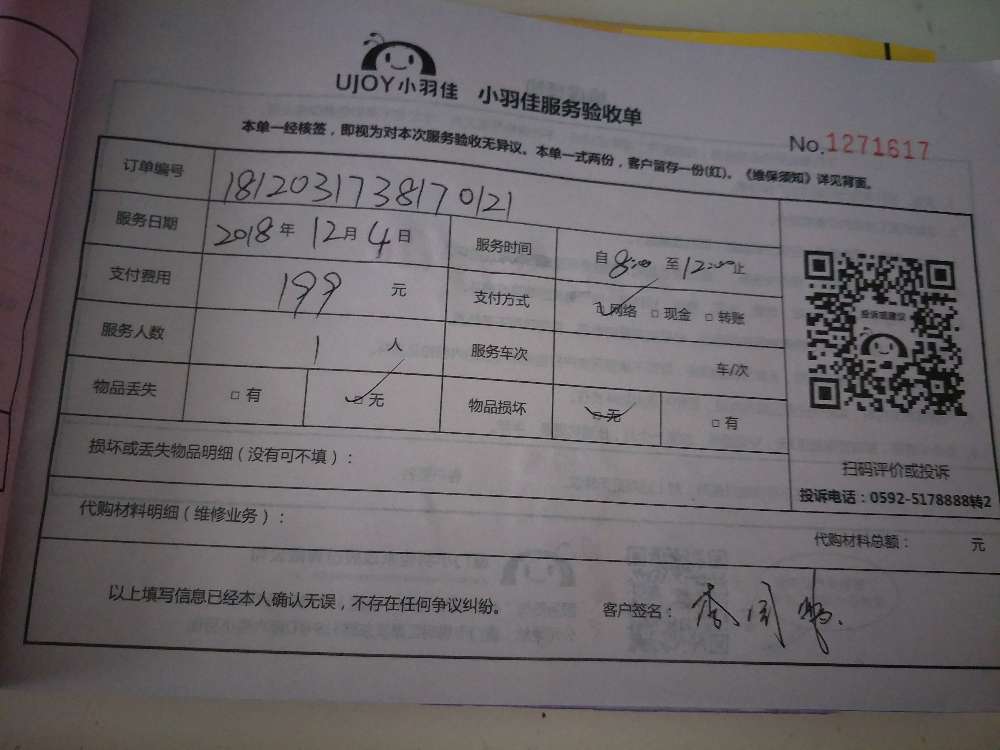 UJOY小羽佳 小羽佳服务验收单
No.1271617
本单一经核签，即视为对本次服务验收无异议。本单一式两份，客户留存一份(红)。《维保须知》详见背面。
订单编号 181203173817 0121
服务日期 2018年12月4日 服务时间 自8:00至12:00止
支付费用 199元 支付方式 ☑网络 □现金 □转账
服务人数 1人 服务车次 车/次
物品丢失 □有 ☑无 物品损坏 ☑无 □有
投诉或建议
扫码评价或投诉
投诉电话：0592-5178888转2
损坏或丢失物品明细（没有可不填）：
代购材料明细（维修业务）：
代购材料总额： 元
以上填写信息已经本人确认无误，不存在任何争议纠纷。 客户签名：